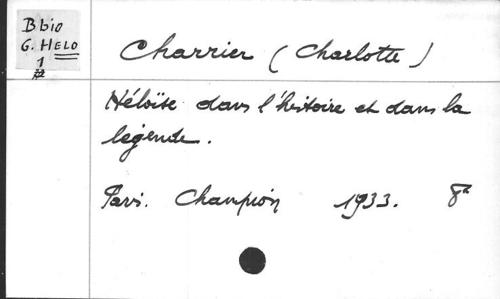 B bio
G. HELO
1
Charrier (Charlotte)
Héloïse dans l'histoire et dans la
légende.
Paris. Champion 1933. 8°